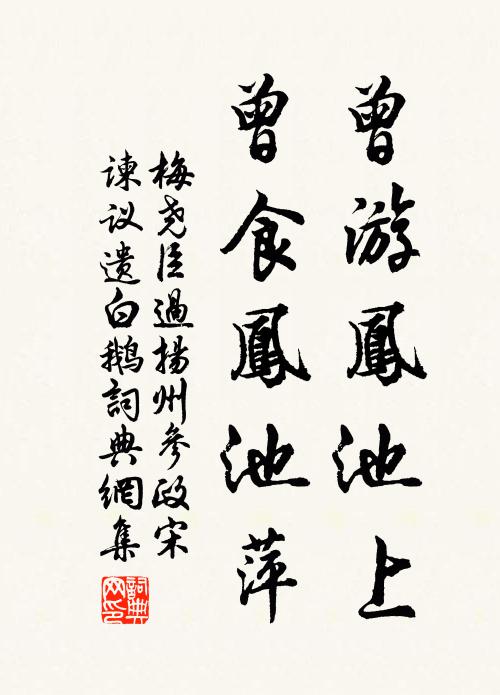 曾游鳳池上
曾食鳳池萍
梅尧臣過揚州參政宋
諫议遗白鵝詞典網集
詞典网印